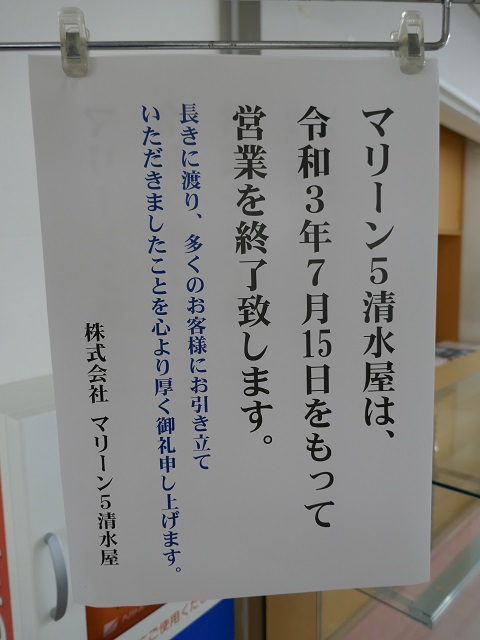 マリーン5清水屋は、
令和3年7月15日をもって
営業を終了致します。
長きに渡り、多くのお客様にお引き立て
いただきましたことを心より厚く御礼申し上げます。
株式会社 マリーン5清水屋
ご使用くだ